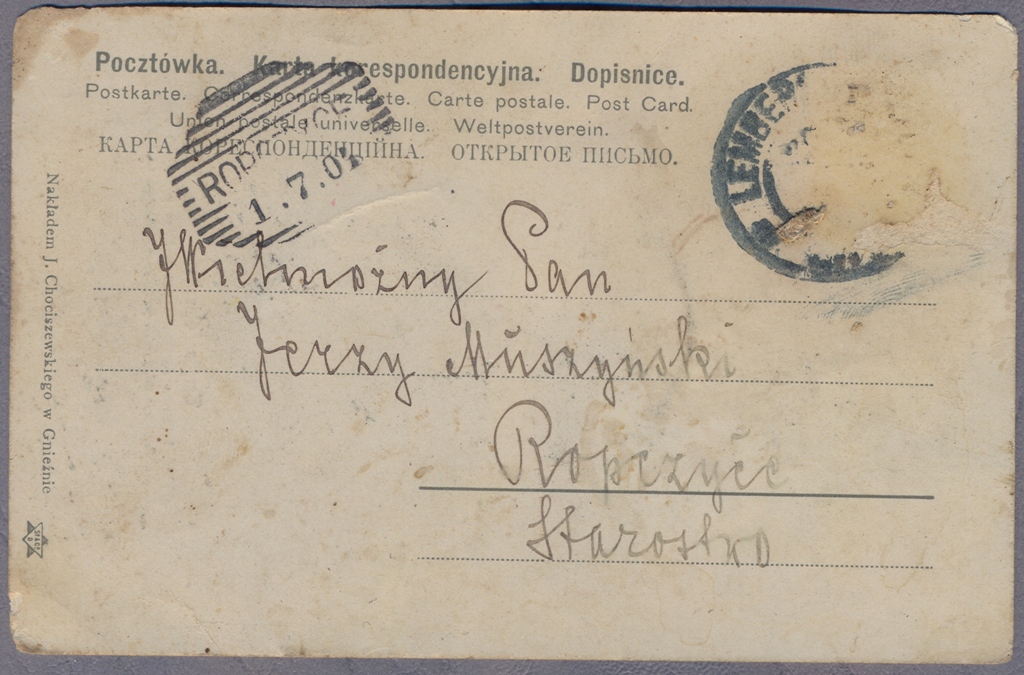 Pocztówka. Karta korespondencyjna. Dopisnice.
Postkarte. Correspondenzkarte. Carte postale. Post Card.
Union postale universelle. Weltpostverein.
КАРТА КОРЕСПОНДЕНЦІЙНА. ОТКРЫТОЕ ПИСЬМО.
1.7.01
LEMBERG
JWielmożny Pan
Jerzy Muszyński
Ropczyce
Starostwo
Nakładem J. Chociszewskiego w Gnieźnie